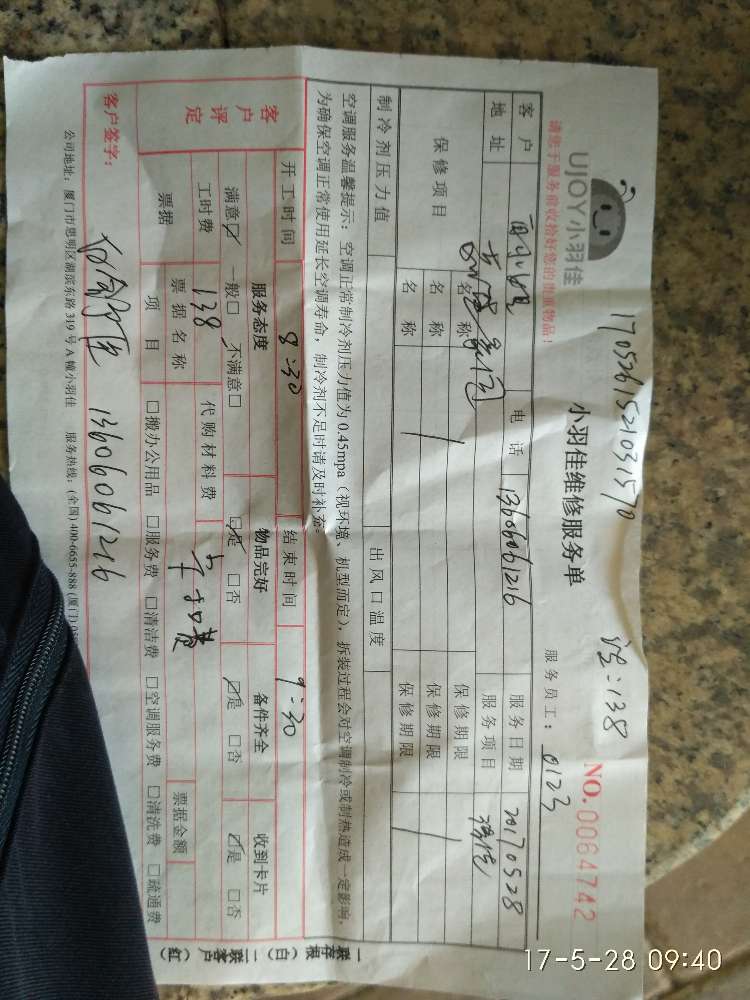 1705261521031570
138
UJOY小羽佳
小羽佳维修服务单
NO.0064742
请您于服务前收拾好您的贵重物品!
服务员工: 0123
客户
电话 13606061216
服务日期 20170528
地址
服务项目
保修项目
名称
保修期限
名称
保修期限
名称
保修期限
制冷剂压力值
出风口温度
空调服务温馨提示: 空调正常制冷剂压力值为0.45mpa(视环境、机型而定), 拆装过程会对空调制冷或制热造成一定影响,
为确保空调正常使用延长空调寿命, 制冷剂不足时请及时补充。
开工时间 8:30
结束时间 9:30
客户评定
服务态度
物品完好
备件齐全
收到卡片
满意☑ 一般□ 不满意□
☑是 □否
☑是 □否
☑是 □否
工时费 138
代购材料费
票据
票据名称
票据金额
项目
□搬办公用品 □服务费 □清洁费 □空调服务费 □清洗费 □疏通费
客户签字: 13606061216
公司地址: 厦门市思明区湖滨东路319号A幢小羽佳 服务热线: (全国)400-6655-888 (厦门)
一联存根(白) 二联客户(红)
17-5-28 09:40